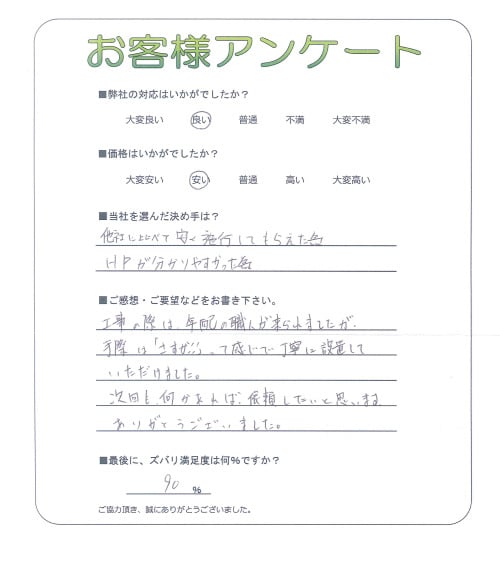 お客様アンケート
■弊社の対応はいかがでしたか？
大変良い 良い 普通 不満 大変不満
■価格はいかがでしたか？
大変安い 安い 普通 高い 大変高い
■当社を選んだ決め手は？
他社に比べて安く施行してもらえた点
HPが分かりやすかった点
■ご感想・ご要望などをお書き下さい。
工事の際は、年配の職人が来られましたが、
手際は「さすが!!」って感じで丁寧に設置して
いただけました。
次回も何かあれば、依頼したいと思います
ありがとうございました。
■最後に、ズバリ満足度は何%ですか？
90 %
ご協力頂き、誠にありがとうございました。